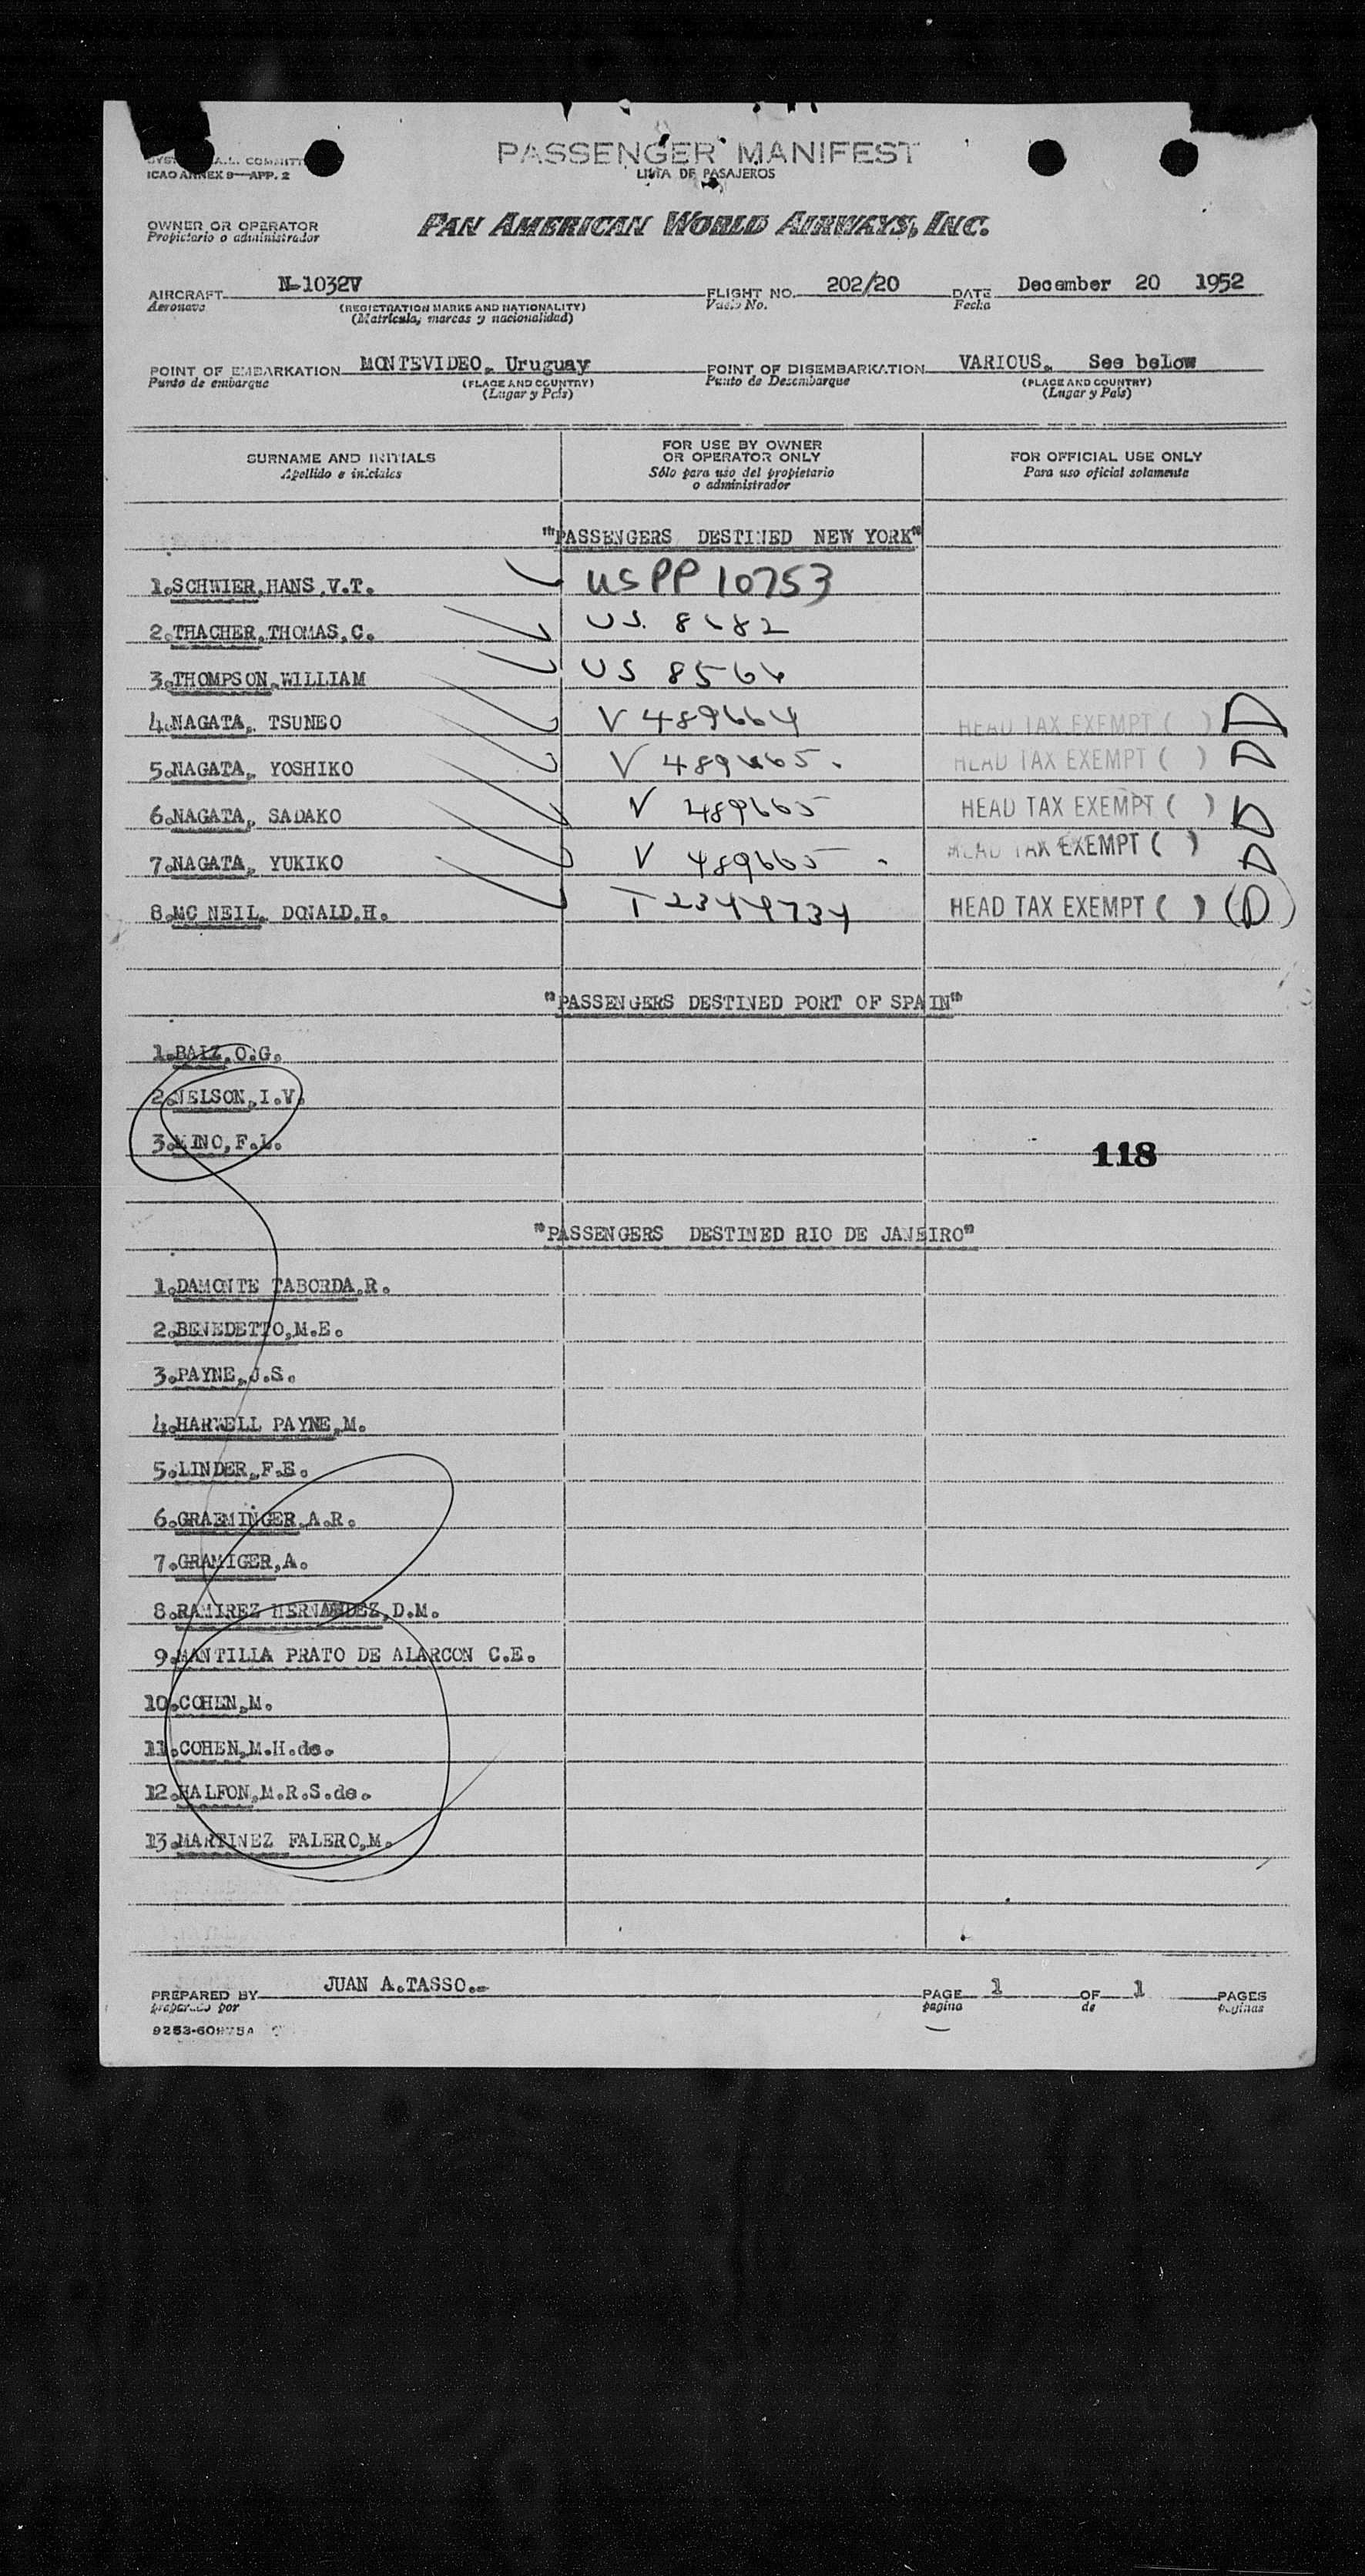 PASSENGER MANIFEST
LISTA DE PASAJEROS
ICAO ANNEX 9—APP. 2
OWNER OR OPERATOR
Propietario o administrador
PAN AMERICAN WORLD AIRWAYS, INC.
AIRCRAFT N-1032V FLIGHT NO. 202/20 DATE December 20 1952
Aeronave (REGISTRATION MARKS AND NATIONALITY) Vuelo No. Fecha
(Matrícula, marcas y nacionalidad)
POINT OF EMBARKATION MONTEVIDEO, Uruguay POINT OF DISEMBARKATION VARIOUS. See below
Punto de embarque (PLACE AND COUNTRY) Punto de Desembarque (PLACE AND COUNTRY)
(Lugar y País) (Lugar y País)
SURNAME AND INITIALS
Apellido e iniciales
FOR USE BY OWNER
OR OPERATOR ONLY
Sólo para uso del propietario
o administrador
FOR OFFICIAL USE ONLY
Para uso oficial solamente
"PASSENGERS DESTINED NEW YORK"
1.SCHWIER,HANS,V.T. US PP 10753
2.THACHER,THOMAS,C. US. 8682
3.THOMPSON,WILLIAM US 8566
4.NAGATA, TSUNEO V 489664 HEAD TAX EXEMPT ( ) D
5.NAGATA, YOSHIKO V 489665. HEAD TAX EXEMPT ( ) D
6.NAGATA, SADAKO V 489665 HEAD TAX EXEMPT ( ) D
7.NAGATA, YUKIKO V 489665 HEAD TAX EXEMPT ( ) D
8.MC NEIL. DONALD.H. T 2344734 HEAD TAX EXEMPT ( ) (D)
"PASSENGERS DESTINED PORT OF SPAIN"
1.BAIZ,O.G.
2.NELSON,I.V.
3.MINO,F.L.
118
"PASSENGERS DESTINED RIO DE JANEIRO"
1.DAMONTE TABORDA,R.
2.BENEDETTO,M.E.
3.PAYNE,J.S.
4.HARWELL PAYNE,M.
5.LINDER,F.E.
6.GRAEMINGER,A.R.
7.GRAMIGER,A.
8.RAMIREZ HERNANDEZ,D.M.
9.MANTILLA PRATO DE ALARCON C.E.
10.COHEN,M.
11.COHEN,M.H.de.
12.HALFON,M.R.S.de.
13.MARTINEZ FALERO,M.
PREPARED BY JUAN A.TASSO.- PAGE 1 OF 1 PAGES
preparado por pagina de paginas